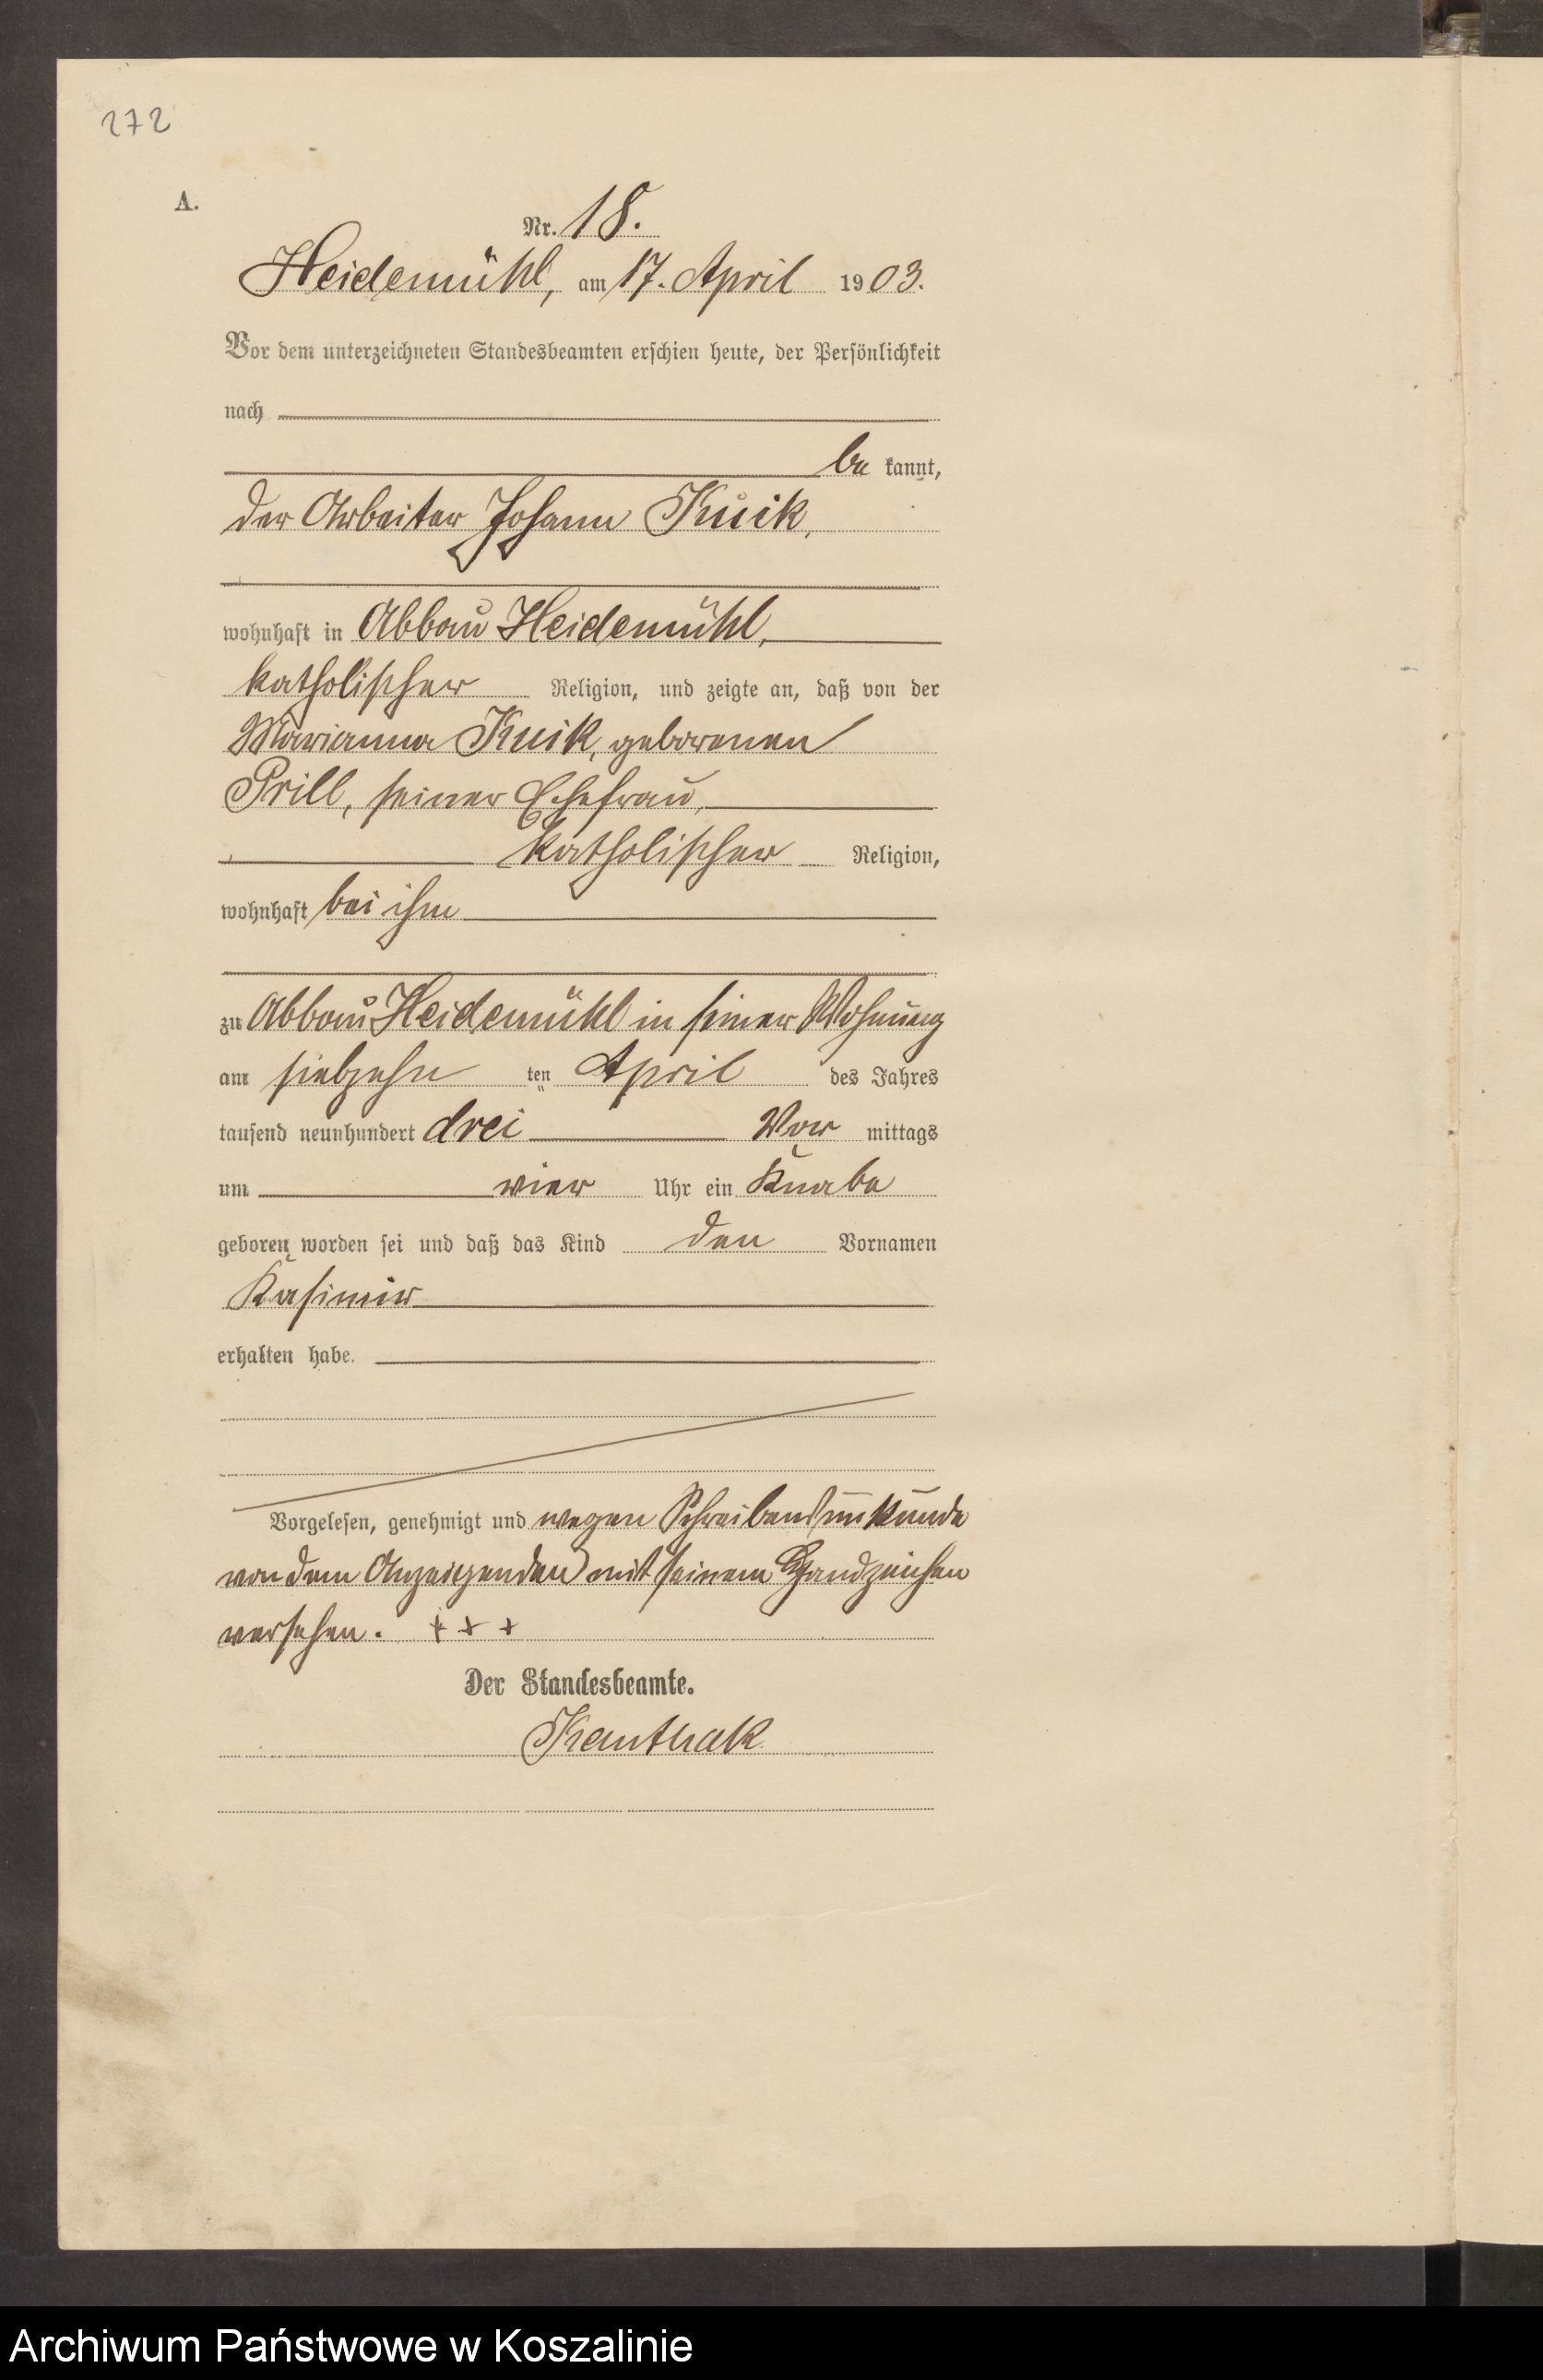 272
A.
Nr. 18.
Heidemühl, am 17. April 1903.
Vor dem unterzeichneten Standesbeamten erschien heute, der Persönlichkeit
nach
be kannt,
der Arbeiter Johann Kuik,
wohnhaft in Abbau Heidemühl,
katholischer Religion, und zeigte an, daß von der
Marianna Kuik, geborenen
Prill, seiner Ehefrau,
katholischer Religion,
wohnhaft bei ihm
zu Abbau Heidemühl in seiner Wohnung
am siebzehn ten April des Jahres
tausend neunhundert drei Vor mittags
um vier Uhr ein Knabe
geboren worden sei und daß das Kind den Vornamen
Kasimir
erhalten habe.
Vorgelesen, genehmigt und wegen Schreibensunkunde
von dem Anzeigenden mit seinem Handzeichen
versehen. + + +
Der Standesbeamte.
Kanthak
Archiwum Państwowe w Koszalinie